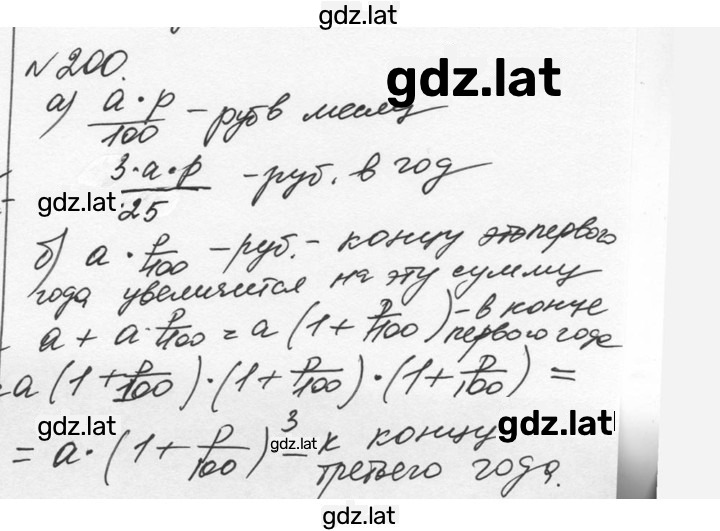 gdz.lat
№200.
gdz.lat
а) a·p/100 - руб в месяц
3·a·p/25 - руб. в год
gdz.lat
б) a·p/100 - руб. - концу первого
года увеличится на эту сумму
a + a·p/100 = a(1+p/100) - в конце
первого года
=a(1+p/100)·(1+p/100)·(1+p/100)=
gdz.lat
gdz.lat
gdz.lat
= a·(1+p/100)^3 - к концу
третьего года.
gdz.lat